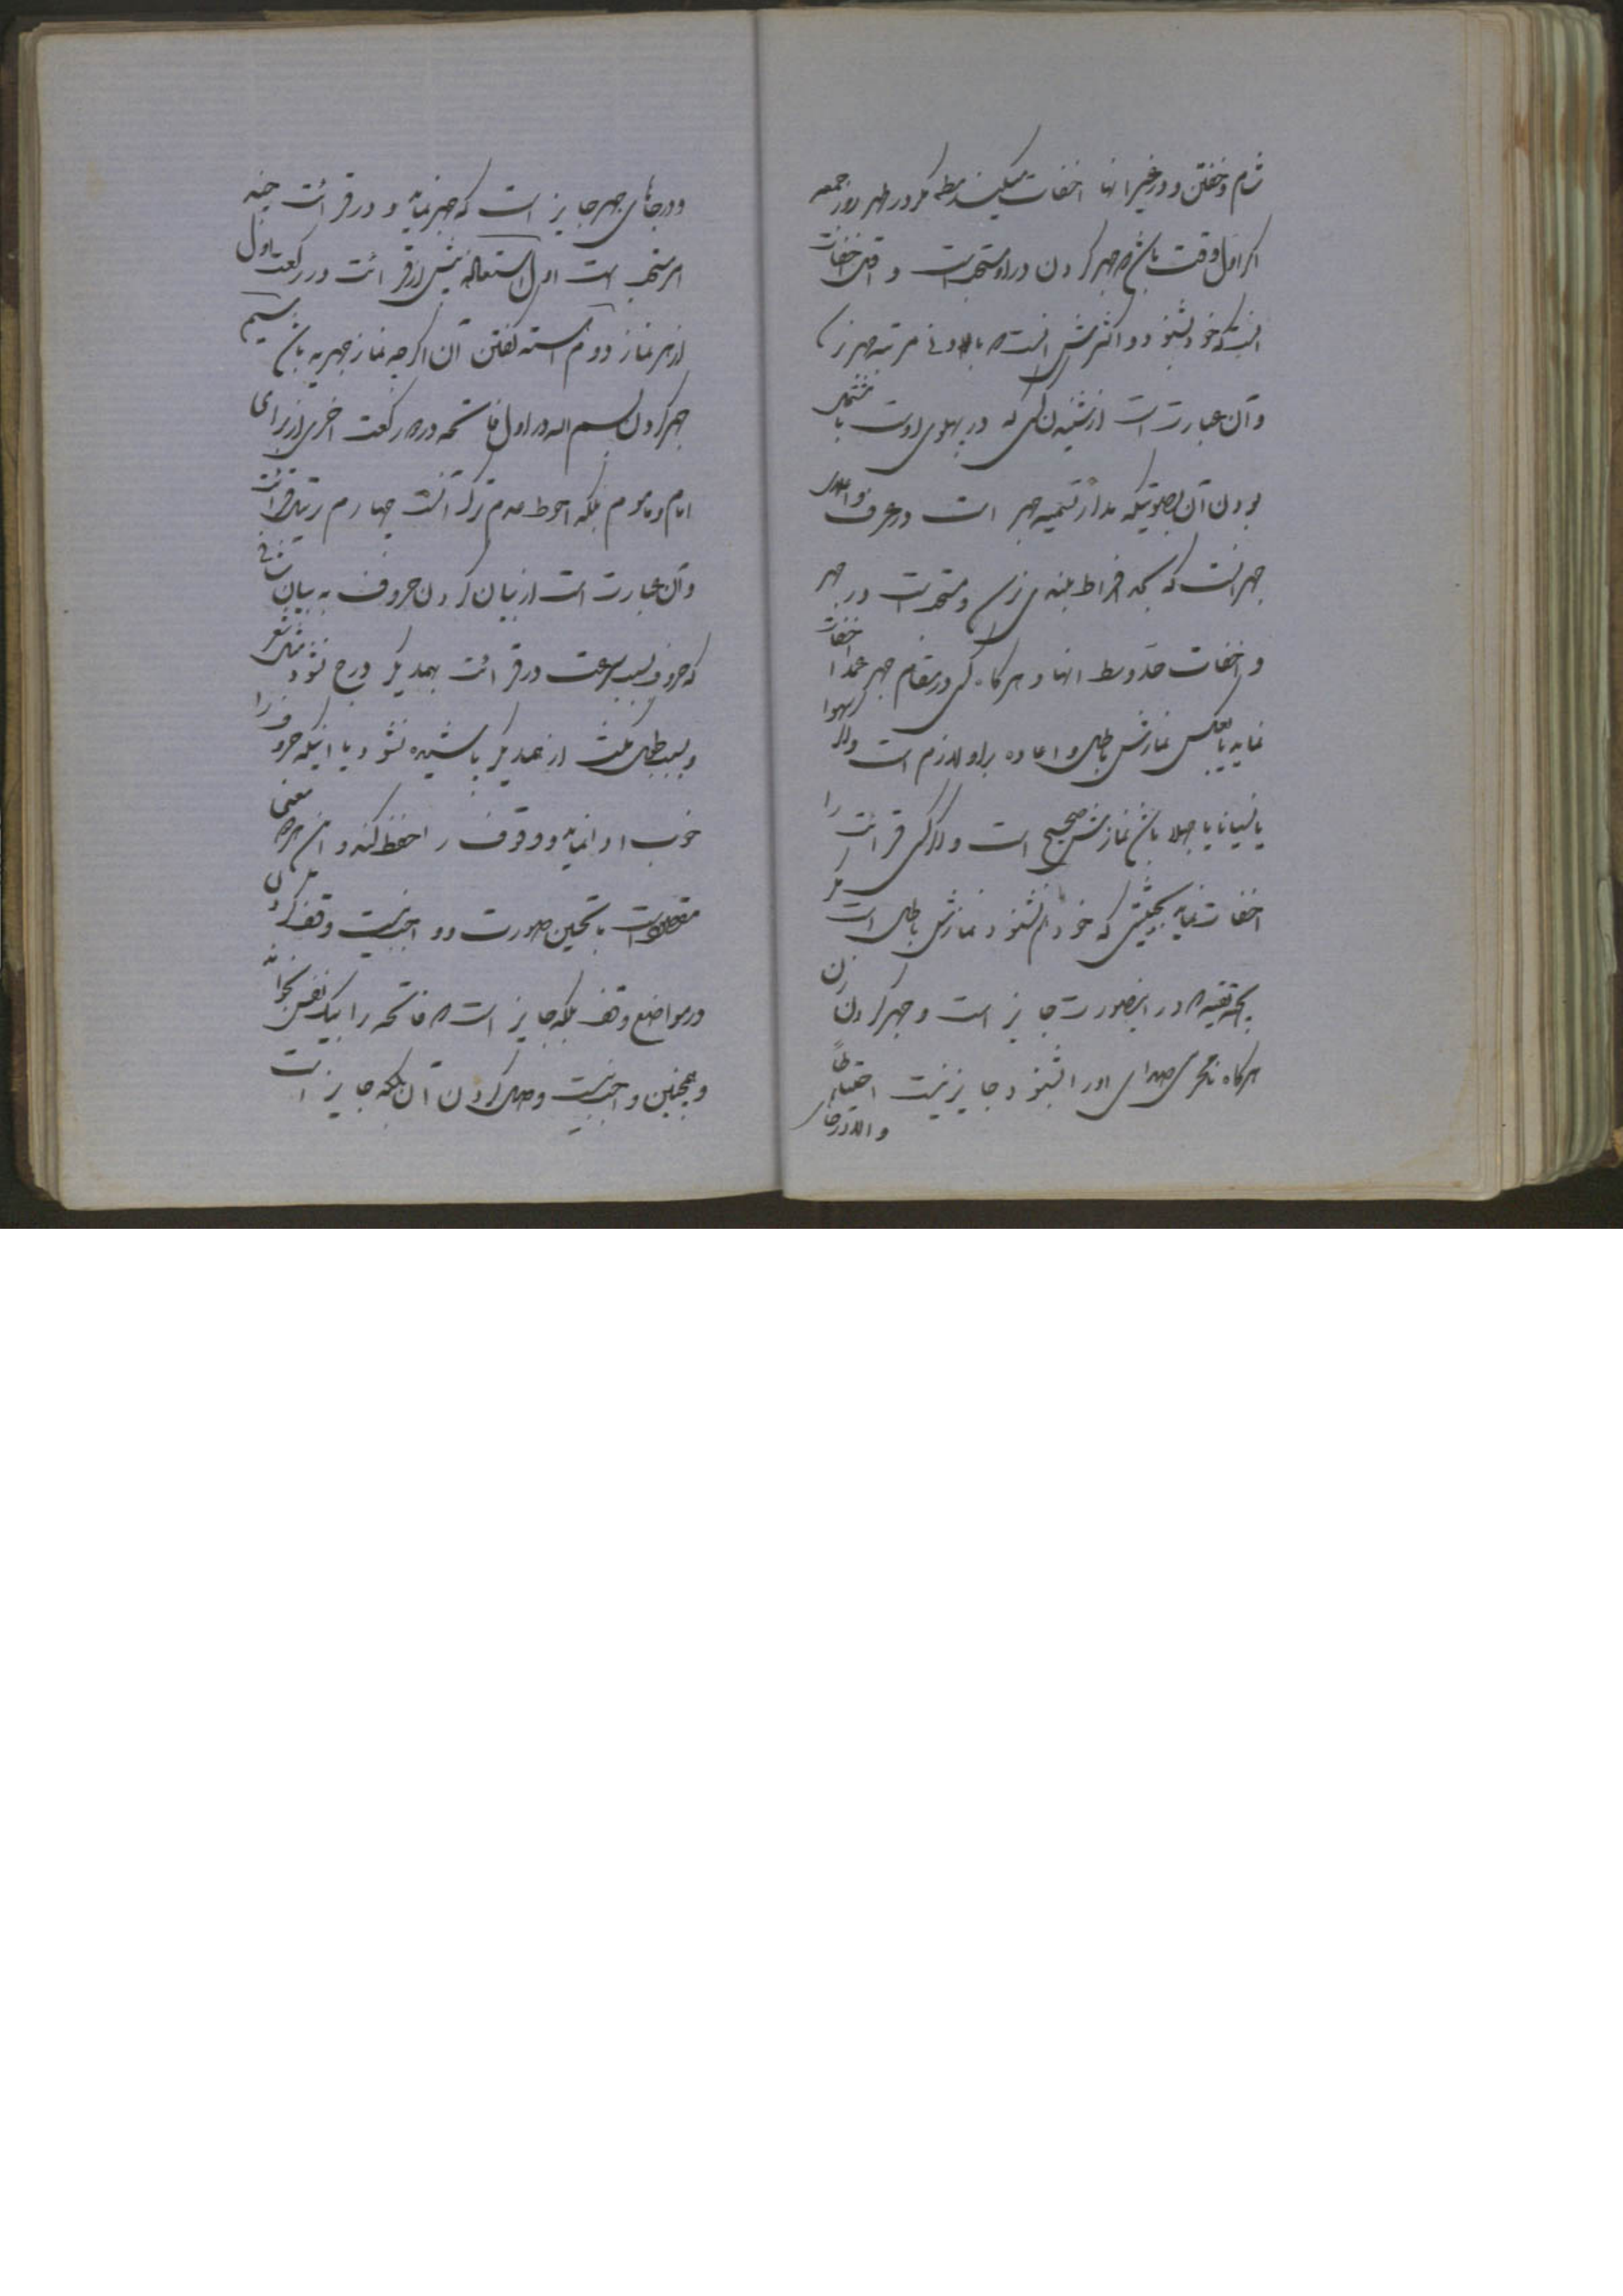 شام و خفتن و در غیر انها اخفات میکند مطلقه مکر در ظهر روز جمعه
اکر اول وقت باشد که جهر کردن در او مستحب است و اقل اخفات
انست که خود بشنود و اکثرش انست که بادنی مرتبه جهر نرسد
و آن عبارت است از شنیدن کسی که در پهلوی اوست با مشتمل
بودن آن بصوتیکه مدار تسمیه جهر است در عرف و اعلای
جهر انست که بحد افراط بلندی نرسد و مستحب است در جهر
و اخفات حد وسط انها و هرکاه کسی در مقام جهر عمدا اخفات
نماید یا بعکس نمازش باطل و اعاده براو لازم است و اکر سهوا
یا نسیانا یا جهلا باشد نمازش صحیح است و اکر کسی قرائت را
اخفات نماید بحیثیتی که خود هم نشنود نمازش باطل است مکر
بجهة تقیه که در اینصورت جایز است و جهر کردن زن
هرکاه نامحرمی صدای او را بشنود جایز نیست احتیاطا
و الا در جای
و در جاهای جهر جایز است که جهر نماید و در قرائت چند
امر مستحب است اول استعاذه پیش از قرائت در رکعت اول
از هر نماز دوم آهسته کفتن آن اکر چه نماز جهریه باشد سیم
جهر کردن بسم الله در اول فاتحه در دو رکعت اخری از برای
امام و ماموم بلکه احوط عدم ترک آنست چهارم ترتیل قرائت
و آن عبارت است از بیان کردن حروف به بیان شافی
که حروف بسبب سرعت در قرائت بهمدیکر درج نشود مثل شعر
و بسبب طول مکث از همدیکر پاشیده نشود یا اینکه حروف را
خوب ادا نماید و وقوف را حفظ کند و این هر دو معنی
مقصود است با تحسین صورت و واجب نیست وقف کردن
در مواضع وقف بلکه جایز است که فاتحه را بیک نفس بخواند
و همچنین واجب نیست وصل کردن آن بلکه جایز است